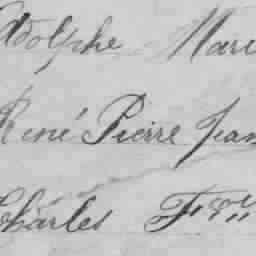 Adolphe Mari
René Pierre Jean
Charles Fçois